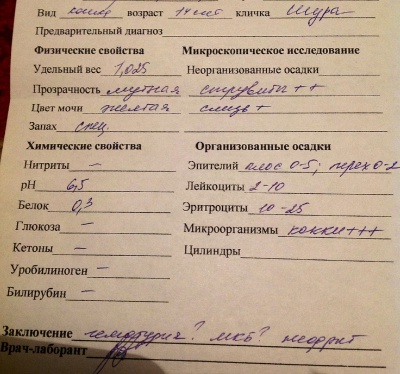 Вид кошка возраст 14 лет кличка Шура
Предварительный диагноз
Физические свойства Микроскопическое исследование
Удельный вес 1,025 Неорганозованные осадки
Прозрачность мутная струвиты ++
Цвет мочи желтая слизь +
Запах спец.
Химические свойства Организованные осадки
Нитриты – Эпителий плос 0-5; перех 0-2
pH 6,5 Лейкоциты 2-10
Белок 0,3 Эритроциты 10-25
Глюкоза – Микроорганизмы кокки +++
Кетоны – Цилиндры
Уробилиноген –
Билирубин –
Заключение гематурия? мкб? нефрит
Врач-лаборант